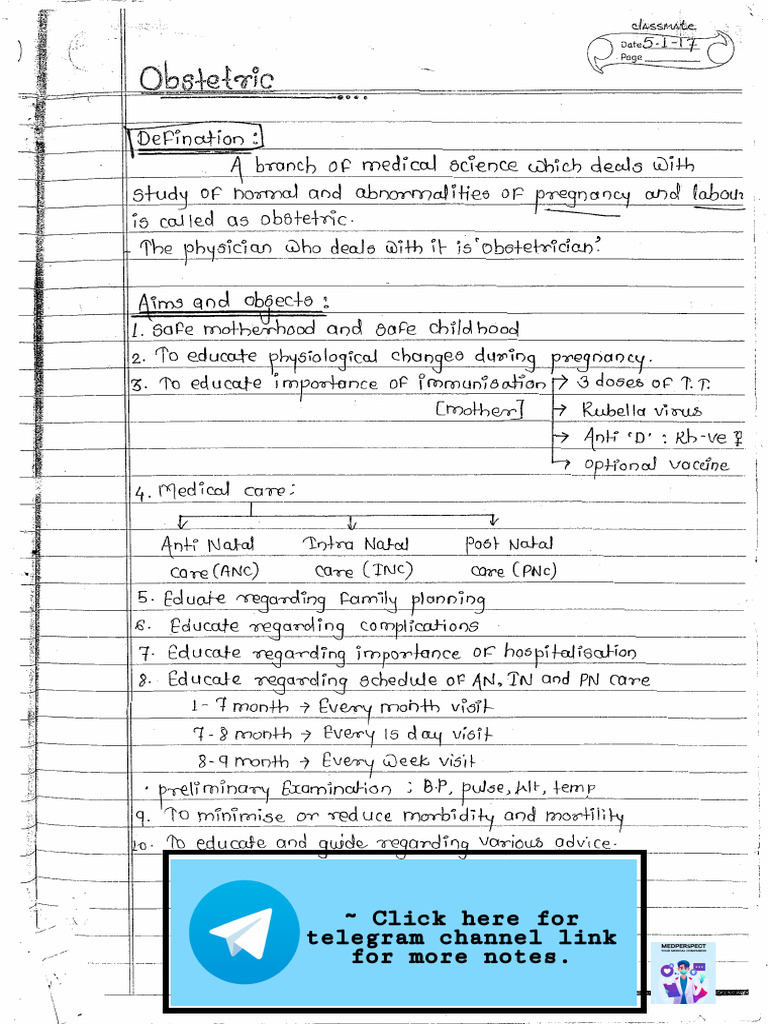 classmate
Date 5-1-17
Page
Obstetric
Defination :
A branch of medical science which deals with
study of normal and abnormalities of pregnancy and labour
is called as obstetric.
The physician who deals with it is 'obstetrician'.
Aims and obgects :
1. Safe motherhood and safe childhood
2. To educate physiological changes during pregnancy.
3. To educate importance of immunisation → 3 doses of T.T.
[mother] → Rubella virus
→ Anti 'D' : Rh-ve ♀
→ optional vaccine
4. Medical care :
Anti Natal Intra Natal Post Natal
care (ANC) care (INC) care (PNC)
5. Eduate regarding family planning
6. Educate regarding complications
7. Educate regarding importance of hospitalisation
8. Educate regarding schedule of AN, IN and PN care
1-7 month → Every month visit
7-8 month → Every 15 day visit
8-9 month → Every week visit
• preliminary Examination : B.P, pulse, wt, temp
9. To minimise or reduce morbidity and mortility
10. To educate and guide regarding various advice.
~ Click here for
telegram channel link
for more notes.
MEDPERSPECT
YOUR MEDICAL COMPANION